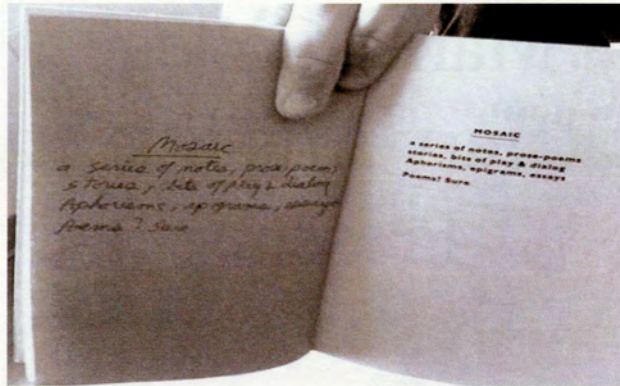 Mosaic
a series of notes, prose-poems
stories, bits of play & dialog
Aphorisms, epigrams, essays
Poems? Sure
MOSAIC
a series of notes, prose-poems
stories, bits of play & dialog
Aphorisms, epigrams, essays
Poems? Sure